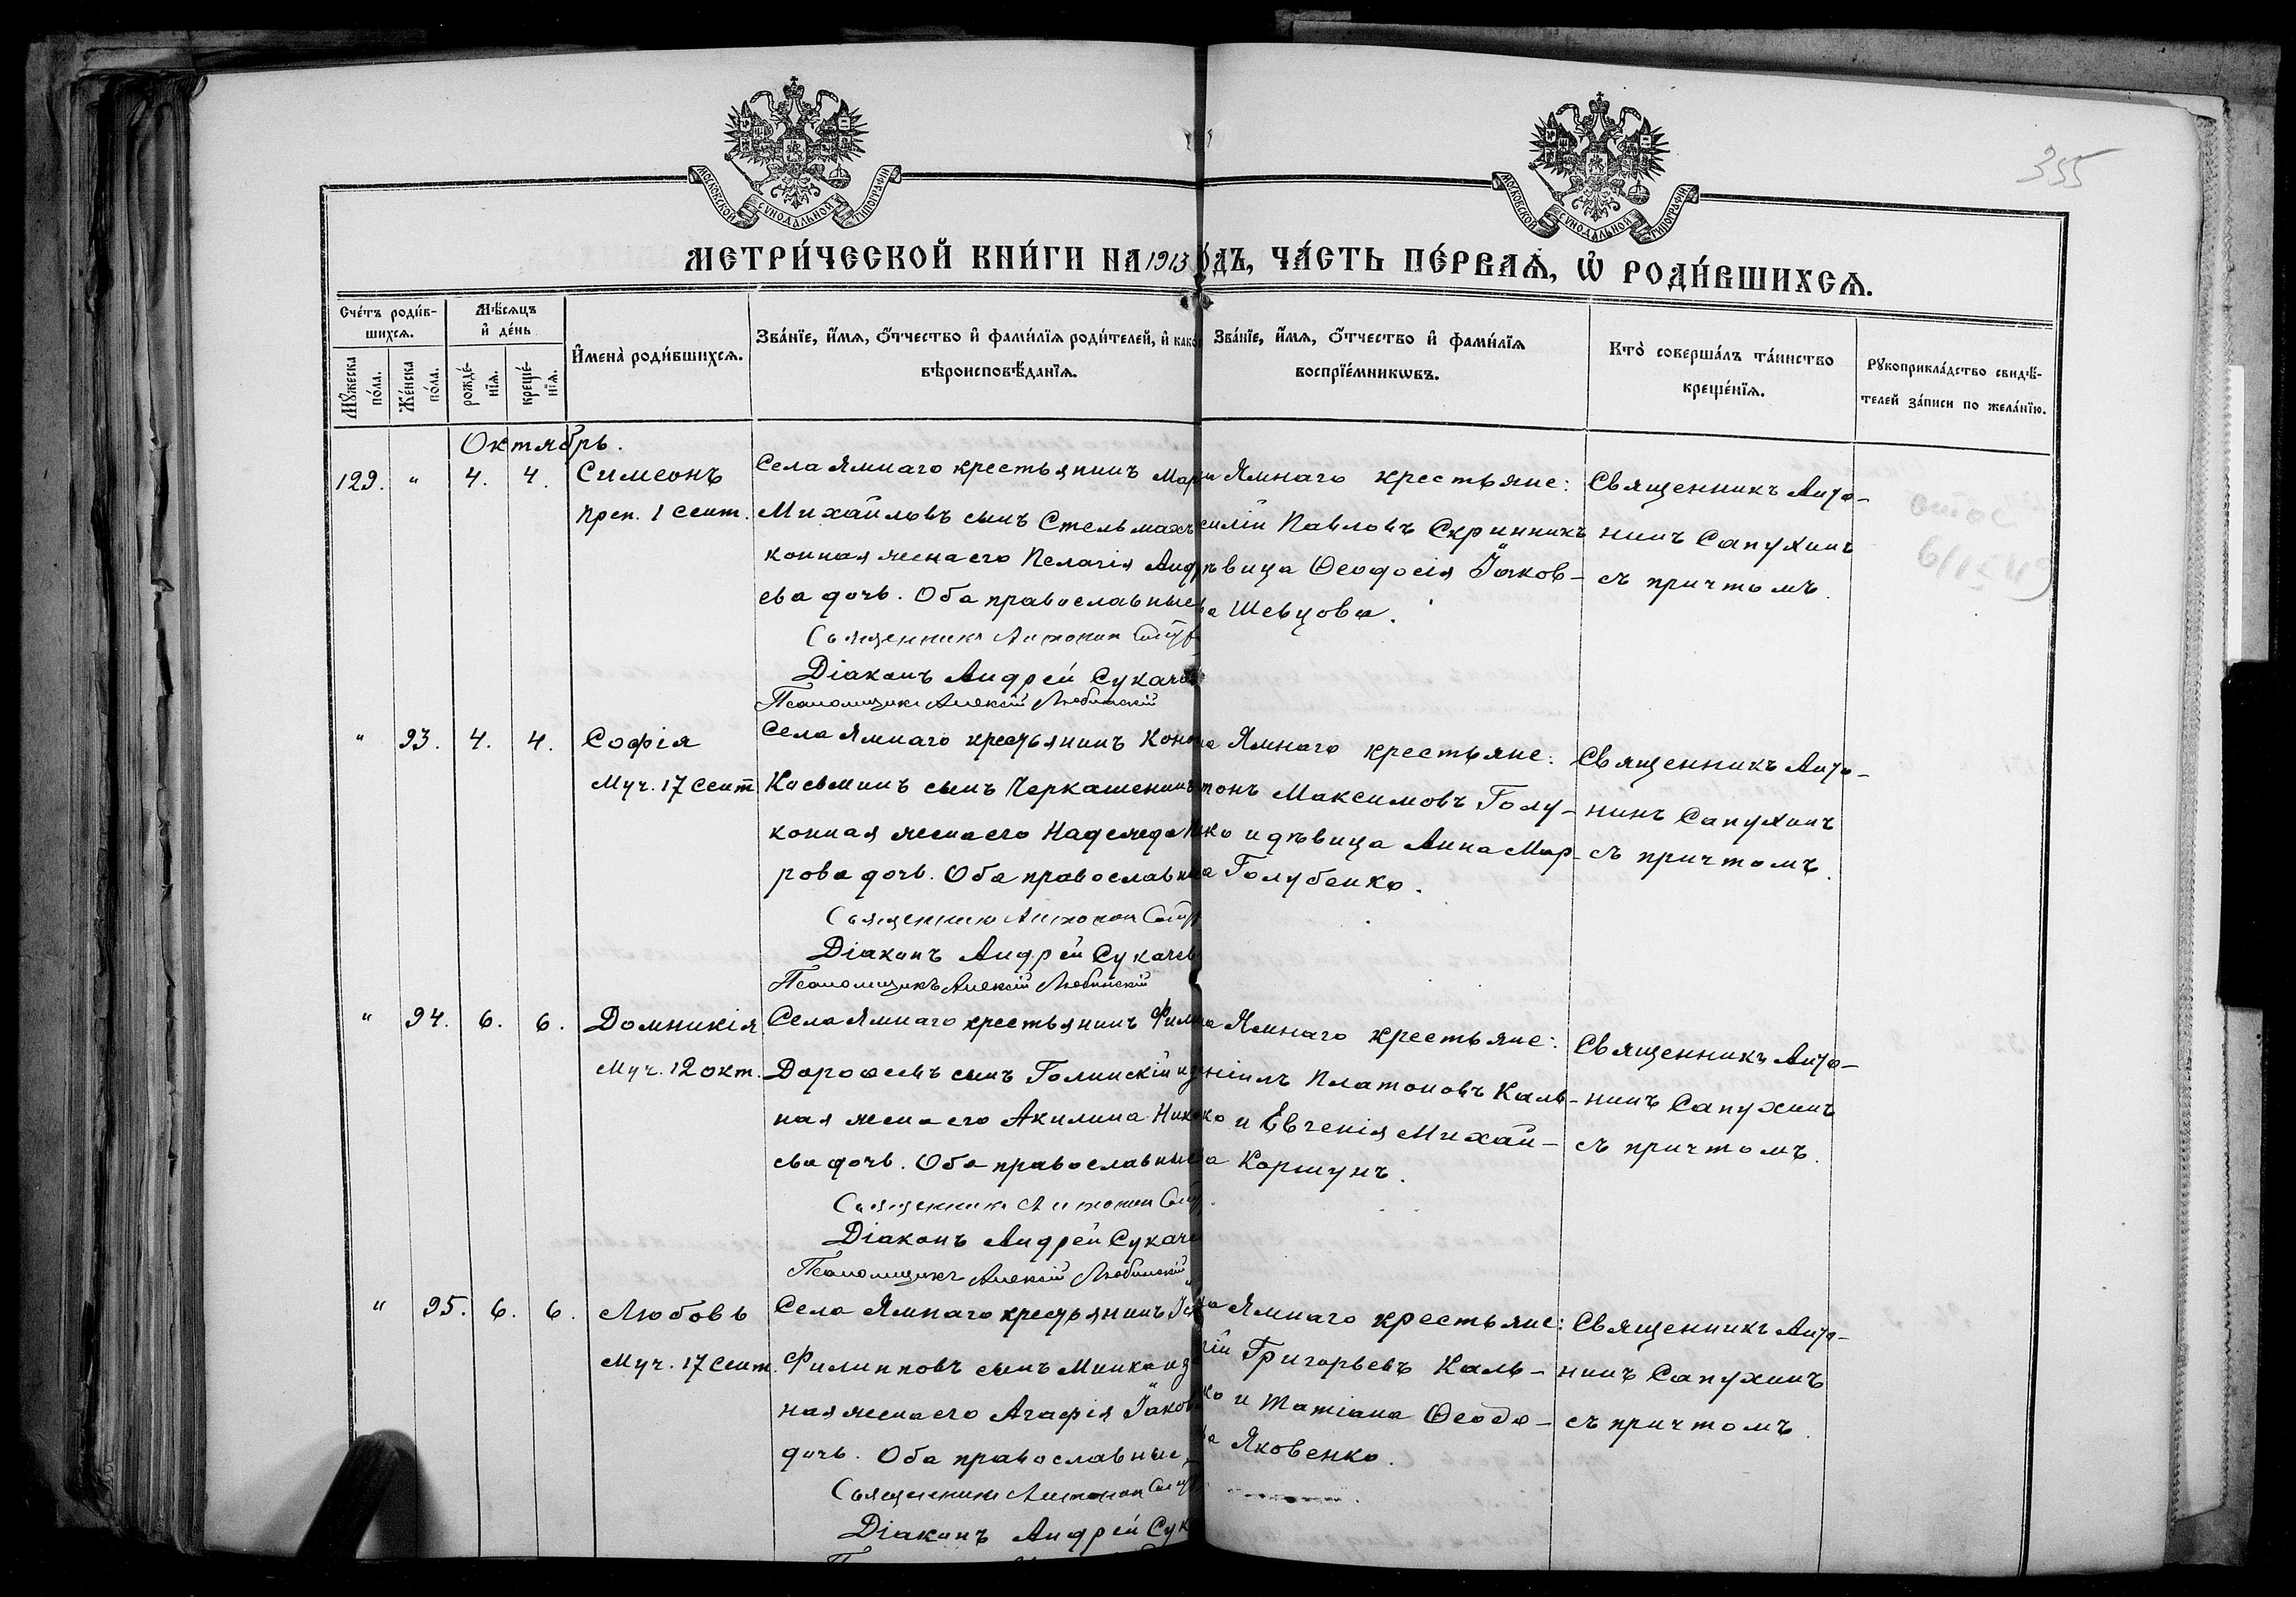 355
МОСКОВСКОЙ СѴНОДАЛЬНОЙ ТИПОГРАФІИ
МОСКОВСКОЙ СѴНОДАЛЬНОЙ ТИПОГРАФІИ
МЕТРИ́ЧЕСКОЙ КНИ́ГИ НА 1913 ГО́ДЪ, ЧА́СТЬ ПЕ́РВАѦ, Ѡ҆ РОДИ́ВШИХСѦ.
Сче́тъ роди́в-
шихся.
Мꙋ́жеска по́ла.
Же́нска по́ла.
Мѣ́сяцъ
и҆ де́нь
рожде́-
нїѧ.
креще́-
нїѧ.
И҆мена̀ роди́вшихсѧ.
Зва́нїе, и҆́мѧ, ѻ҆́тчество и҆ фами́лїѧ роди́телей, и҆ како
вѣроисповѣ́данїѧ.
Зва́нїе, и҆́мѧ, ѻ҆́тчество и҆ фами́лїѧ
воспрїе́мникѡвъ.
Кто̀ соверша́лъ та́инство
креще́нїѧ.
Рꙋкоприкла́дство свидѣ́-
телей за́писи по жела́нїю.
Октябрь.
129. " 4. 4. Симеонъ
Преп. 1 Сент.
Села Ямнаго крестьянинъ
Михайловъ сынъ Стельмахъ
конная жена его Пелагія Анд
ева дочь. Оба православные
Священникъ Антонин
Діаконъ Андрей Сукаче
Псаломщикъ Алексій Любинскій
Ямнаго крестьяне:
силій Павловъ Скринникъ
ѣвица Ѳеодосія Іаков-
ва Шевцова.
Священникъ Анто-
нинъ Сапухинъ
съ причтомъ.
" 93. 4. 4. Софія
Муч. 17 Сент
Села Ямнаго крестьянинъ Коно
Косьминъ сынъ Черкашенинъ
конная жена его Надежда
рова дочь. Оба православны
Священникъ Антонин
Діаконъ Андрей Сукачев
Псаломщикъ Алексій Любинскій
Ямнаго крестьяне:
тонъ Максимовъ Голу-
ко и дѣвица Анна Мар-
Голубенко.
Священникъ Анто-
нинъ Сапухинъ
съ причтомъ.
" 94. 6. 6. Домникія
Муч. 12 окт.
Села Ямнаго крестьянинъ Фили
Дороѳеевъ сынъ Голинскій
ная жена его Акилина Ник
ева дочь. Оба православные
Священникъ Антонин
Діаконъ Андрей Сукаче
Псаломщикъ Алексій Любинскій
Ямнаго крестьяне:
ніилъ Платоновъ Каль-
ко и Евгенія Михай-
Коршунъ.
Священникъ Анто-
нинъ Сапухинъ
съ причтомъ.
" 95. 6. 6. Любовь
Муч. 17 Сент.
Села Ямнаго крестьянинъ
Филипповъ сынъ Минко
ная жена его Агафія Іаков
дочь. Оба православные
Священникъ Антонин
Діаконъ Андрей Сук
Ямнаго крестьяне:
Григорьевъ Каль-
ко и Татіана Ѳеодо-
ва Яковенко.
Священникъ Анто-
нинъ Сапухинъ
съ причтомъ.